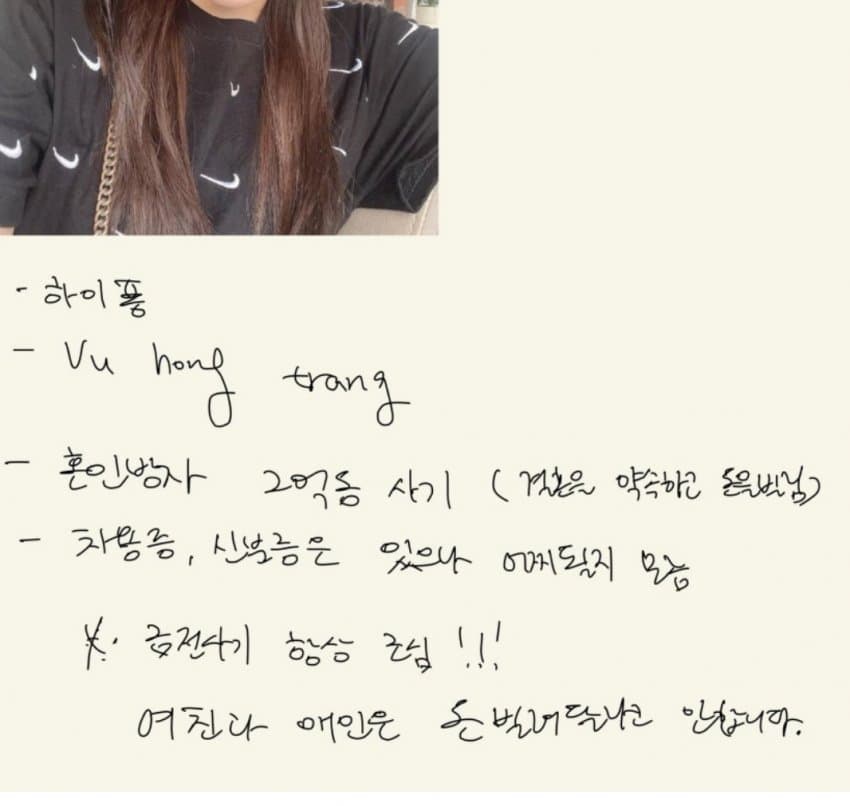 - 하이퐁
- Vu hong trang
- 혼인빙자 2억동 사기 (결혼은 약속하고 돈을빌림)
- 차용증, 신분증은 있으나 어찌될지 모름
※. 금전사기 항상 조심!!!
여친나 애인은 돈빌려달라고 안합니다.